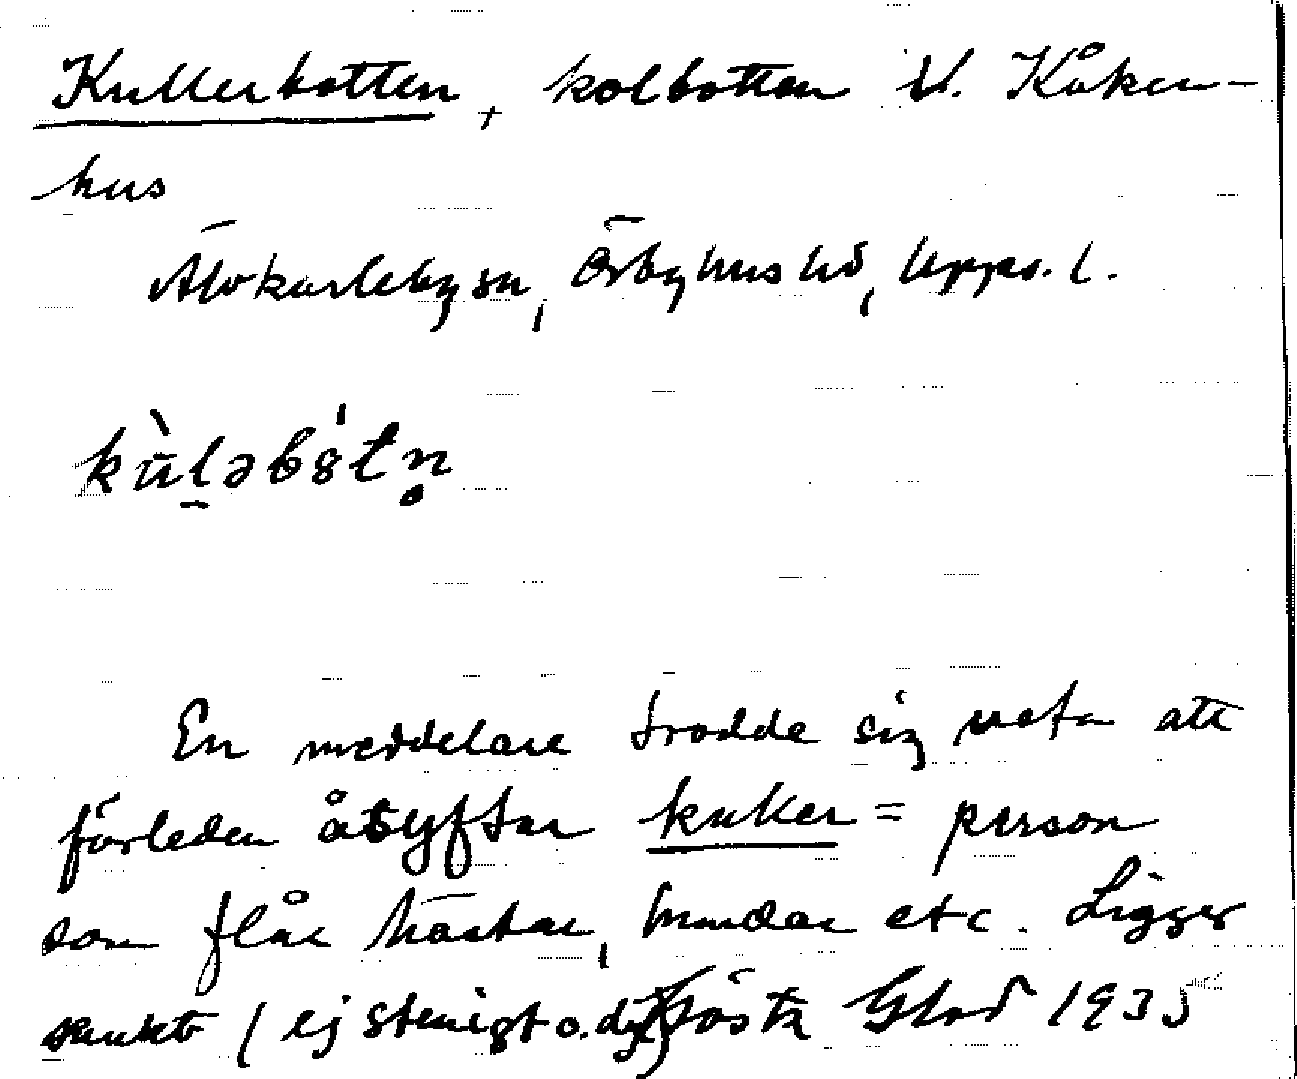 Kullerbotten, kolbotten V. Kåken-
hus
Älvkarleby sn, Örbyhus hd, Upps. l.
kùl̠əbötn̥
En meddelare trodde sig veta att
förleden åsyftar kuker = person
som flår hästar, hundar etc. Ligger
sankt (ej stenigt o. dyl) Gösta Glad 1935